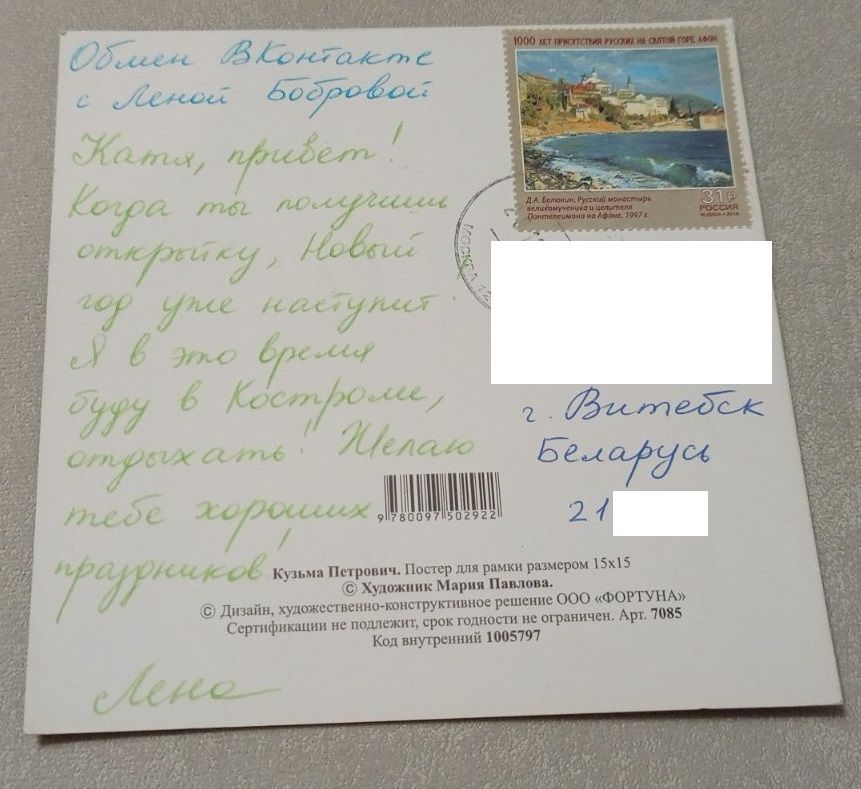 Обмен ВКонтакте
с Леной Бобровой
Катя, привет!
Когда ты получишь
открытку, Новый
год уже наступит.
Я в это время
буду в Костроме,
отдыхать! Желаю
тебе хороших
праздников!
Лена
1000 ЛЕТ ПРИСУТСТВИЯ РУССКИХ НА СВЯТОЙ ГОРЕ АФОН
Д.А. Белюкин. Русский монастырь
великомученика и целителя
Пантелеимона на Афоне. 1997 г.
31₽
РОССИЯ
RUSSIA • 2016
МОСКВА
г. Витебск
Беларусь
21
9 780097 502922
Кузьма Петрович. Постер для рамки размером 15х15
© Художник Мария Павлова.
© Дизайн, художественно-конструктивное решение ООО «ФОРТУНА»
Сертификации не подлежит, срок годности не ограничен. Арт. 7085
Код внутренний 1005797